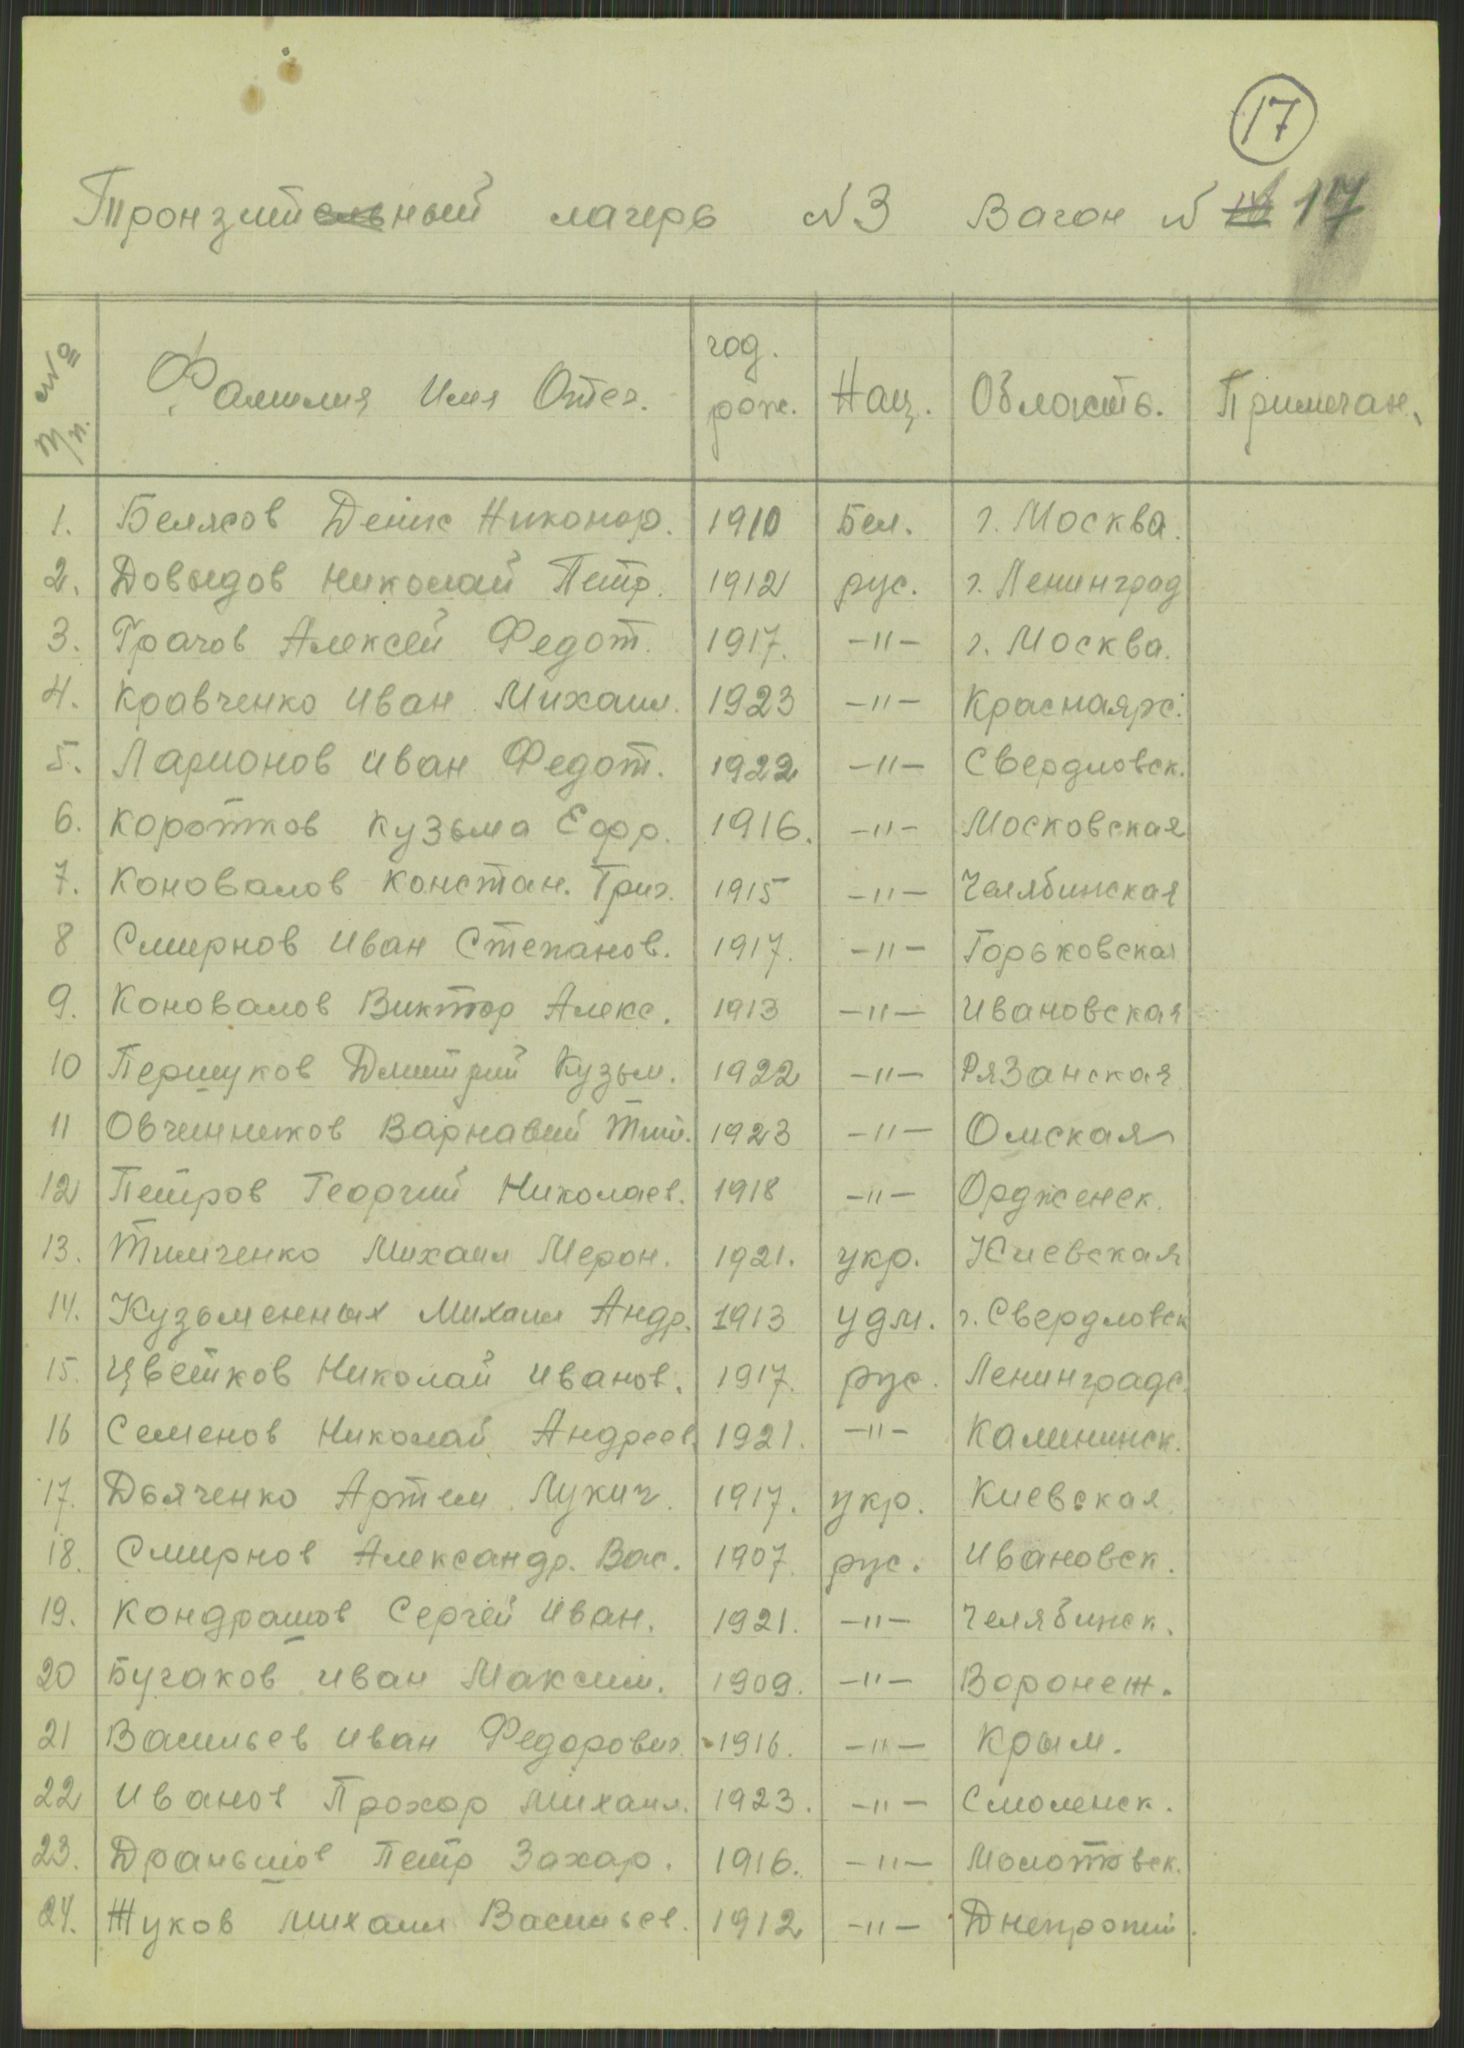 17
Транзитный лагерь №3 Вагон № 17
№ п/п. Фамилия Имя Отеч. год. рож. Нац. Область. Примечан.
1. Белясов Денис Никонор. 1910 Бел. г. Москва.
2. Довыдов Николай Петр. 1912 рус. г. Ленинград
3. Грачов Алексей Федот. 1917. -"- г. Москва.
4. Кравченко Иван Михаил. 1923 -"- Краснаярс.
5. Ларионов Иван Федот. 1922 -"- Свердловск.
6. Коротков Кузьма Ефр. 1916. -"- Московская
7. Коновалов Констан. Григ. 1915 -"- Челябинская
8 Смирнов Иван Степанов. 1917. -"- Горьковская
9. Коновалов Виктор Алекс. 1913 -"- Ивановская
10 Першуков Дмитрий Кузьм. 1922 -"- Рязанская
11 Овчинников Варнавий Тим. 1923 -"- Омская
12 Петров Георгий Николаев. 1918 -"- Ордженск.
13. Тимченко Михаил Мерон. 1921. укр. Киевская
14. Кузьменных Михаил Андр. 1913 удм. г. Свердловск
15. Цветков Николай Иванов. 1917. рус. Ленинградс.
16 Семенов Николай Андреев. 1921. -"- Калининск.
17. Дьяченко Артем Лукич. 1917. укр. Киевская
18. Смирнов Александр. Вас. 1907. рус. Ивановск.
19. Кондрашов Сергей Иван. 1921. -"- Челябинск.
20 Бугаков Иван Максим. 1909. -"- Воронеж.
21 Васильев Иван Федорович. 1916. -"- Крым.
22 Иванов Прохор Михаил. 1923. -"- Смоленск.
23. Драньшов Петр Захар. 1916. -"- Молотовск.
24. Жуков Михаил Васильев. 1912 -"- Днепропит.